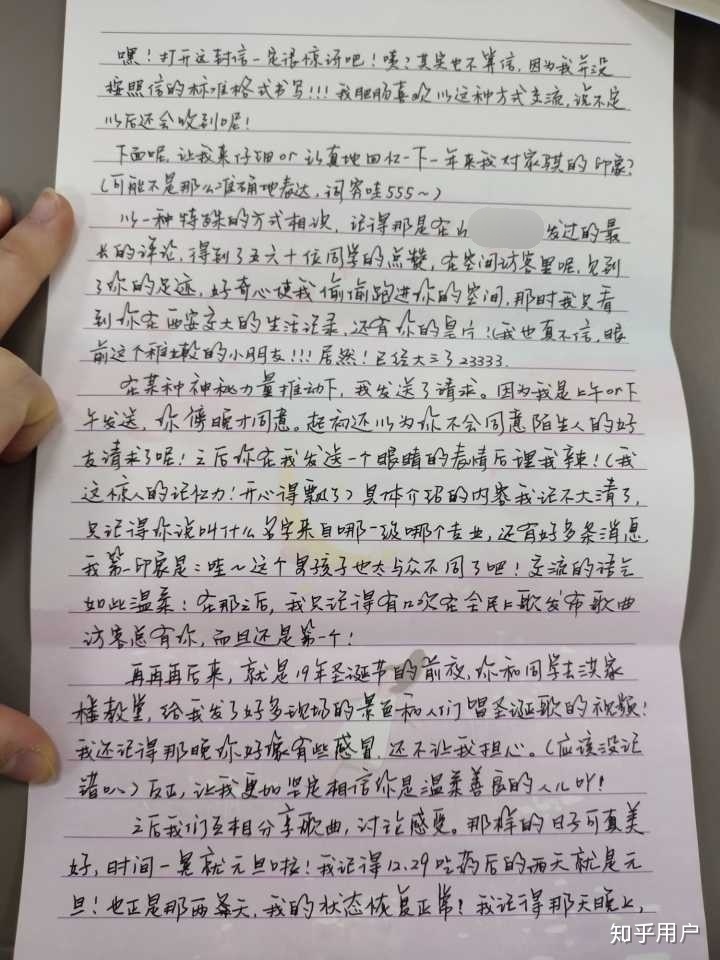 嘿！打开这封信一定很惊讶吧！噗？其实也不算信，因为我并没
按照信的标准格式书写！！！我只是喜欢以这种方式交流，说不定
以后还会收到呢！
下面呢，让我来仔细or认真地回忆一下一年来我对家骐的印象？
（可能不是那么准确地表达，词穷哇555~）
以一种特殊的方式相识，记得那是在山 发过的最
长的评论，得到了五六十位同学的点赞，在空间访客里呢，见到
了你的足迹，好奇心使我偷偷跑进你的空间，那时我只看
到你在西安交大的生活记录，还有你的皂片！（我也真不信，眼
前这个稚嫩的小朋友！！！居然！已经大三了23333.
在某种神秘力量推动下，我发送了请求。因为我是上午or下
午发送，你傍晚才同意。起初还以为你不会同意陌生人的好
友请求了呢！之后你在我发送一个眼睛的表情后理我辣！（我
这惊人的记忆力！开心得飘了）具体介绍的内容我记不大清了，
只记得你说叫什么名字来自哪一级哪个专业，还有好多条消息，
我第一印象是：哇~这个男孩子也太与众不同了吧！交流的语气
如此温柔！在那之后，我只记得有几次在全民k歌发布歌曲
访客总有你，而且还是第一个！
再再再后来，就是19年圣诞节的前夜，你和同学去洪家
楼教堂，给我发了好多现场的景色和人们唱圣诞歌的视频！
我还记得那晚你好像有些感冒，还不让我担心。（应该没记
错叭）反正，让我更加坚定相信你是温柔善良的人儿吖！
之后我们互相分享歌曲，讨论感受。那样的日子可真美
好，时间一晃就元旦啦！我记得12.29吃药后的两天就是元
旦！也正是那两天，我的状态恢复正常！我记得那天晚上，
知乎用户